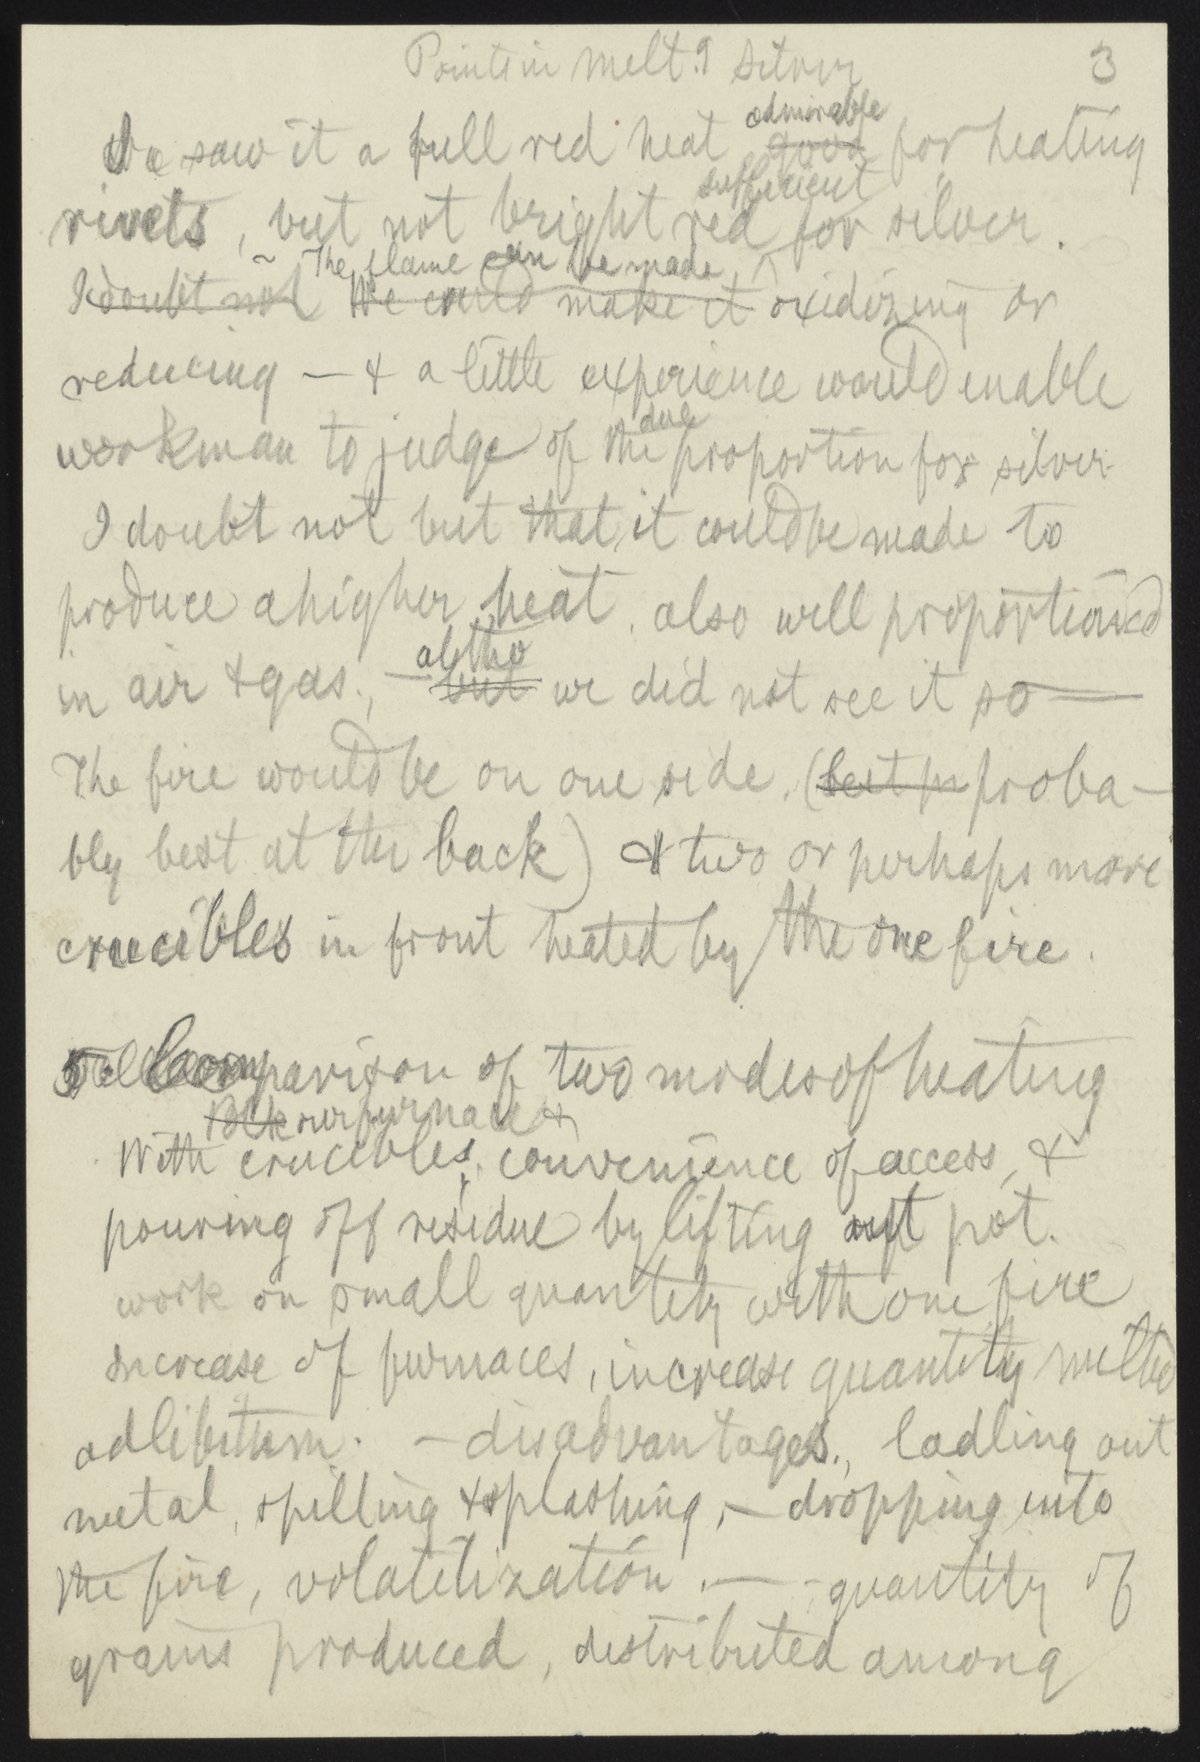 Points in melt.g silver 3
We saw it a full red heat admirable good for heating
sufficient
rivets, but not bright red for silver.
The flame can be made
I doubt not We could make it oxidizing or
reducing — & a little experience would enable
due
workman to judge of the proportion for silver
I doubt not but that it could be made to
produce a higher heat, also well proportioned
altho
in air & gas, — but we did not see it so —
The fire would be on one side, (best in proba-
bly best at the back) & two or perhaps more
crucibles in front heated by the one fire.
Comparison of two modes of heating
our furnace &
With crucibles, convenience of access, &
pouring off residue by lifting out pot.
work on small quantity with one fire
Increase of furnaces, increase quantity melted
adlibitum. — disadvantages, ladling out
metal, spilling & splashing, — dropping into
the fire, volatilization. — quantity of
grains produced, distributed among